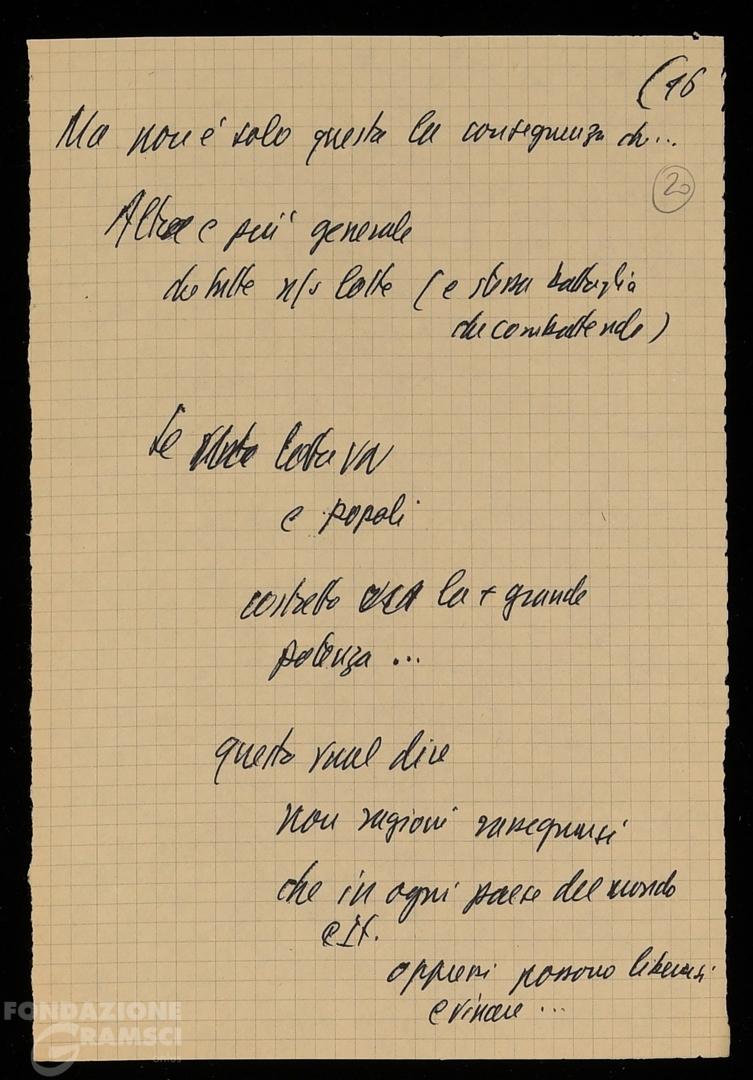 (16
Ma non è solo questa la conseguenza che...
20
Altra e più generale
che tutte n/s lotte (e stessa battaglia
che combattendo)
Se lotta VN
e popoli
costretto USA la + grande
potenza ...
questo vuol dire
non ragioni rassegnarsi
che in ogni paese del mondo
e It.
oppressi possono liberarsi
e vincere ...
FONDAZIONE
GRAMSCI
onlus